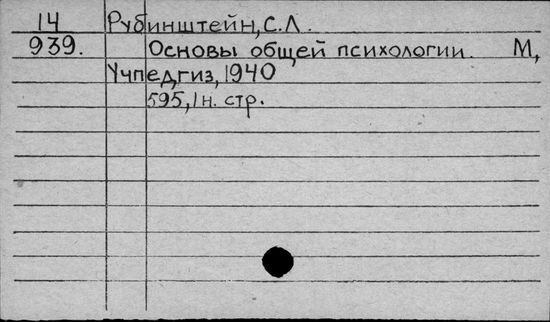 14 Рубинштейн, С.Л.
939. Основы общей психологии. М,
Учпедгиз, 1940
595, 1 н. стр.